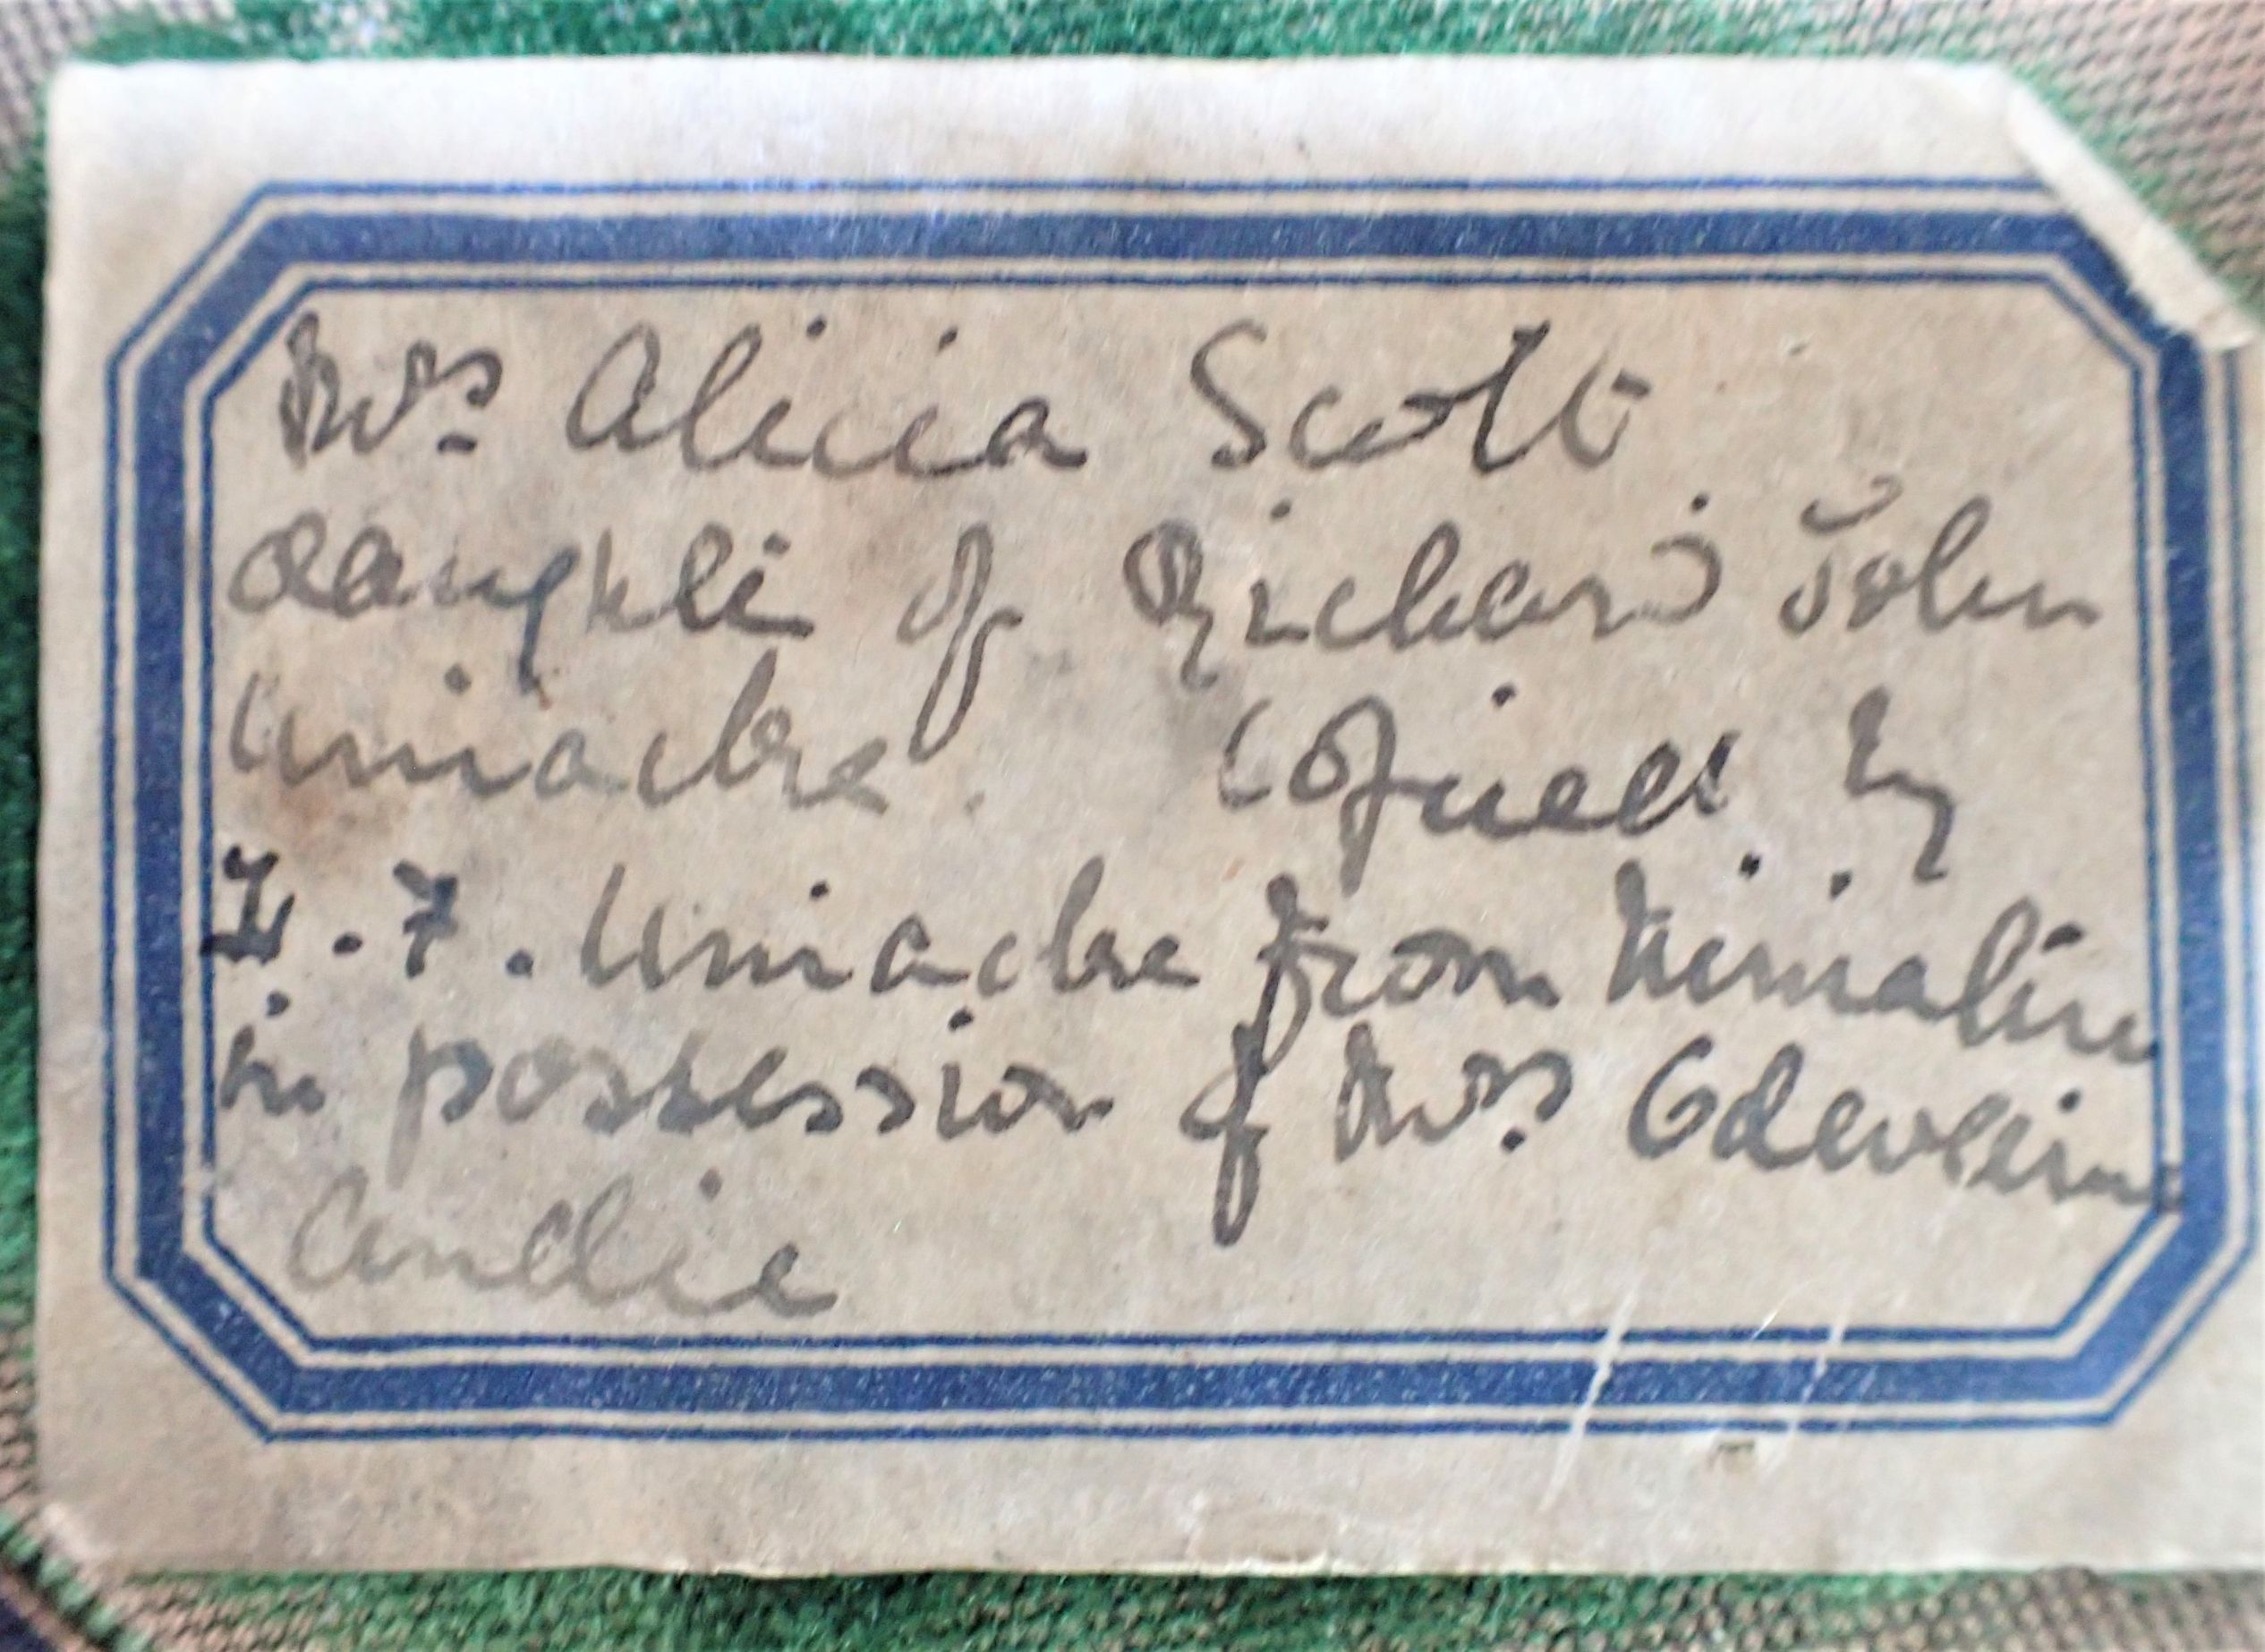 Mrs Alicia Scott
daughter of Richard John
Uniacke. Copied by
Z. F. Uniacke from Miniature
in possession of Mrs